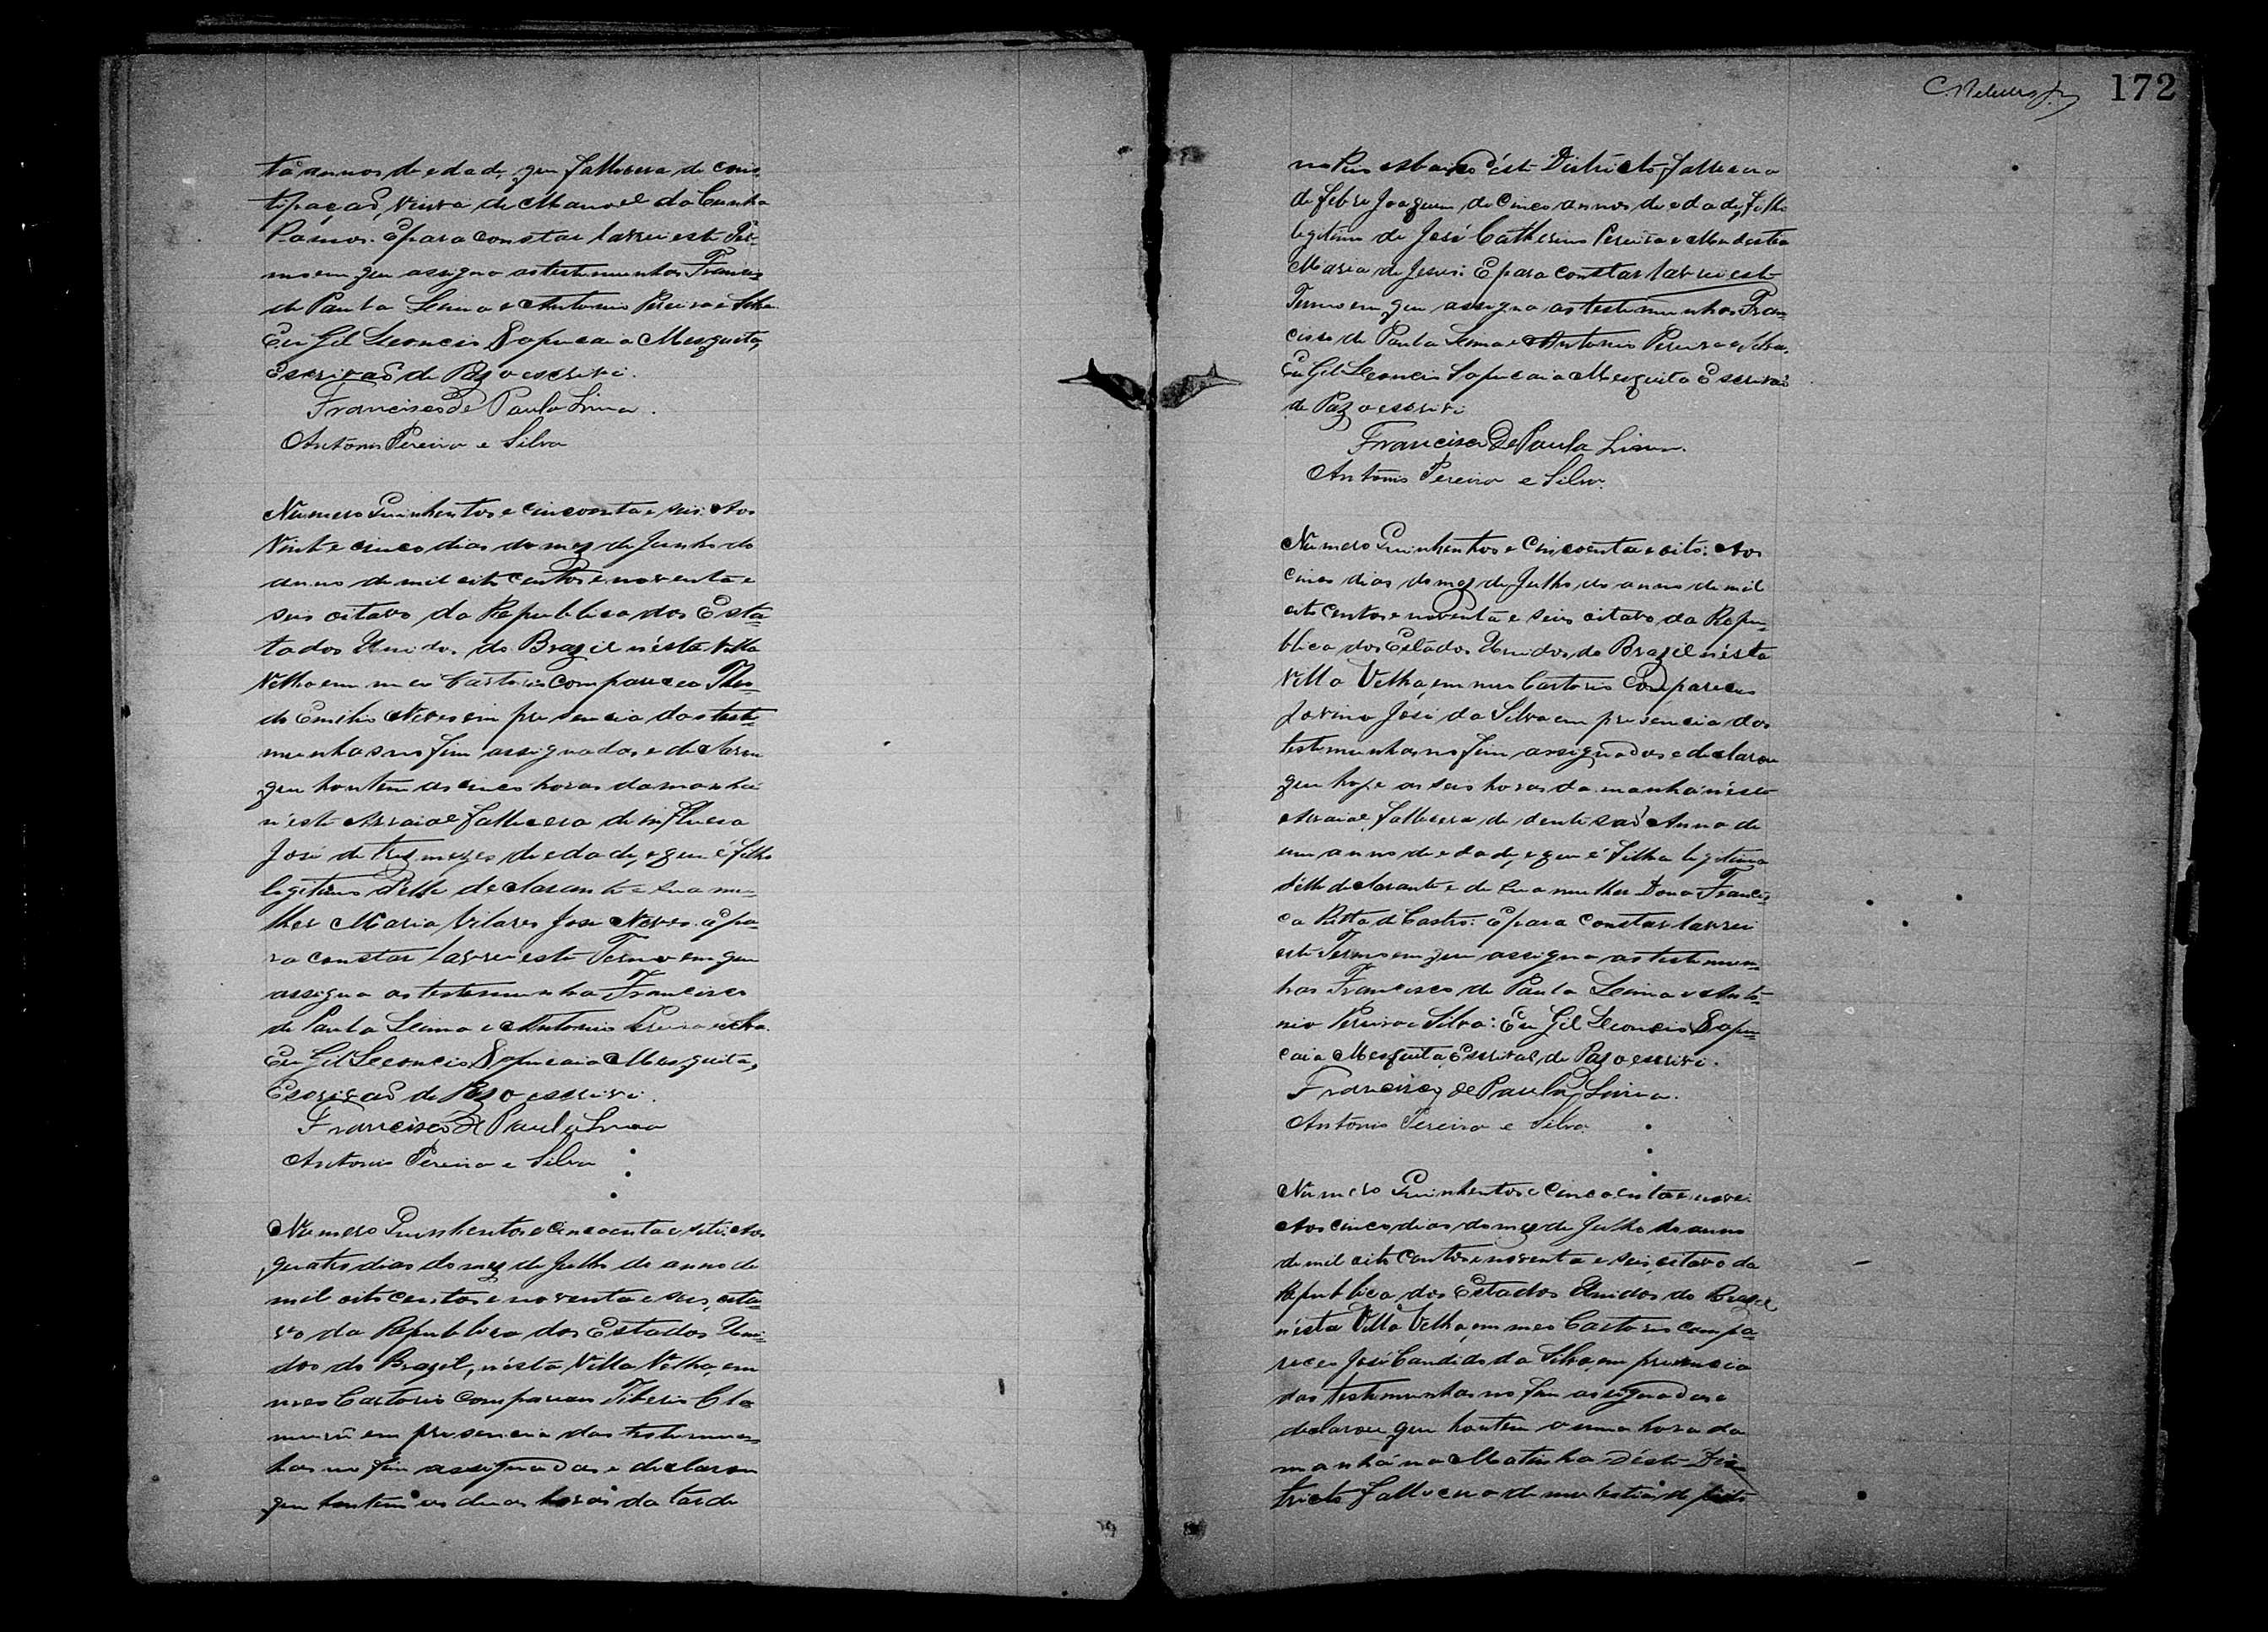 tá annos de edade, que fallecera de cons-
tipação, viuva de Manoel da Cunha
Ramos. E para constar lavrei este Ter-
mo em que assigna as testemunhas Francisco
de Paula Leima e Antonio Pereira e Silva
Eu Gil Leoncio Sapucaia Mesquita,
Escrivaõ de Paz o escrevi.
Francisco de Paula Lima.
Antonio Pereira e Silva
Numero Quinhentos e cincoenta e seis. Aos
Vinte cinco dias do mez de Junho do
anno de mil oito centos e noventa e
seis oitavo da Republica dos Esta-
tados Unidos do Brazil n'ésta Villa
Velha em meu Cartorio compareceu
do Emilio Neves em presencia das teste-
munhas no fim assignadas e declarou
que hontem as cinco horas da manhã
n'éste Arraial fallecera de
José de trez mezes de edade, e que é filho
legitimo d'elle declarante e sua mu-
lher Maria José Neves. E pa-
ra constar lavrei este Termo em que
assigna as testemunha Francisco
de Paula Leima e Antonio Pereira e Silva.
Eu Gil Leoncio Sapucaia Mesquita,
Escrivaõ de Paz o escrevi.
Francisco de Paula Lima
Antonio Pereira e Silva
Numero Quinhentos e Cincoenta e sete. Aos
quatro dias do mez de Julho do anno de
mil oito centos e noventa e seis, oita-
vo da Republica dos Estados Uni-
dos do Brazil, n'ésta Villa Velha, em
meo Cartorio compareceu Tiberio
em presencia das testemun-
has no fim assignadas e declarou
que hontem as duas horas da tarde
C. Rebello Jr. 172
no Rio abaixo d'éste Districto fallecera
de febre Joaquim de Cinco annos de edade, filho
legitimo de José Catherino Pereira e Modestia
Maria de Jesus: E para constar lavrei este
Termo em que assigna as testemunhas Fran-
cisco de Paula Leima e Antonio Pereira e Silva.
Eu Gil Leoncio Sapucaia Mesquita Escrivaõ
de Paz o escrevi
Francisco de Paula Lima.
Antonio Pereira e Silva.
Numero Quinhentos e Cincoenta e oito: Aos
cinco dias do mez de Julho do anno de mil
oito centos e noventa e seis oitavo da Repu-
blica dos Estados Unidos do Brazil n'ésta
Villa Velha, em meo Cartorio compareceu
Jovino José da Silva em presencia das
testemunhas no fim assignadas e declarou
que hoje as seis horas da manhã n'éste
Arraial fallecera de dentisaõ Anna de
um anno de edade, e que é filha legitima
d'elle declarante e de sua mulher Dona Francis-
ca Ritta de Castro: E para constar lavrei
este Termo em que assigna as testemun-
has Francisco de Paula Leima e Anto-
nio Pereira e Silva: Eu Gil Leoncio Sapu-
caia Mesquita Escrivaõ de Paz o escrevi.
Francisco de Paula Lima.
Antonio Pereira e Silva
Numero Quinhentos e Cincoenta e nove.
Aos cinco dias do mez de Julho do anno
de mil oito centos e noventa e seis, oitavo da
Republica dos Estados Unidos do Brazil
n'ésta Villa Velha, em meo Cartorio compa-
receu José Candido da Silva, em presencia
das testemunhas no fim assignadas e
declarou que hontem a uma hora da
manhã na Matinha d'éste Dis-
tricto fallecera de molestia de peito